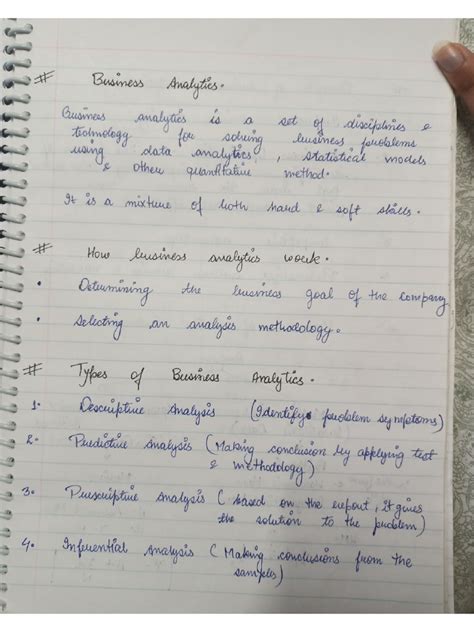 # Business Analytics.
Business analytics is a set of disciplines &
technology for solving business problems
using data analytics, statistical models
& other quantitative method.
It is a mixture of both hard & soft skills.
# How business analytics work.
• Determining the business goal of the company
• Selecting an analysis methodology.
# Types of Business Analytics.
1. Descriptive Analysis (Identify problem symptoms)
2. Predictive Analysis (Making conclusion by applying test
& methodology)
3. Prescriptive Analysis (based on the report, it gives
the solution to the problem)
4. Inferential Analysis (Making conclusions from the
samples)